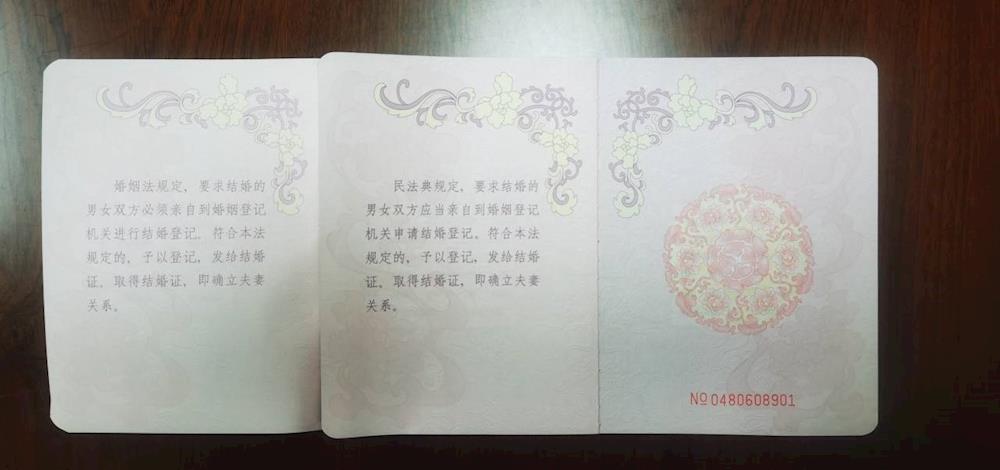 婚姻法规定，要求结婚的
男女双方必须亲自到婚姻登记
机关进行结婚登记。符合本法
规定的，予以登记，发给结婚
证。取得结婚证，即确立夫妻
关系。
民法典规定，要求结婚的
男女双方应当亲自到婚姻登记
机关申请结婚登记。符合本法
规定的，予以登记，发给结婚
证。取得结婚证，即确立夫妻
关系。
№0480608901